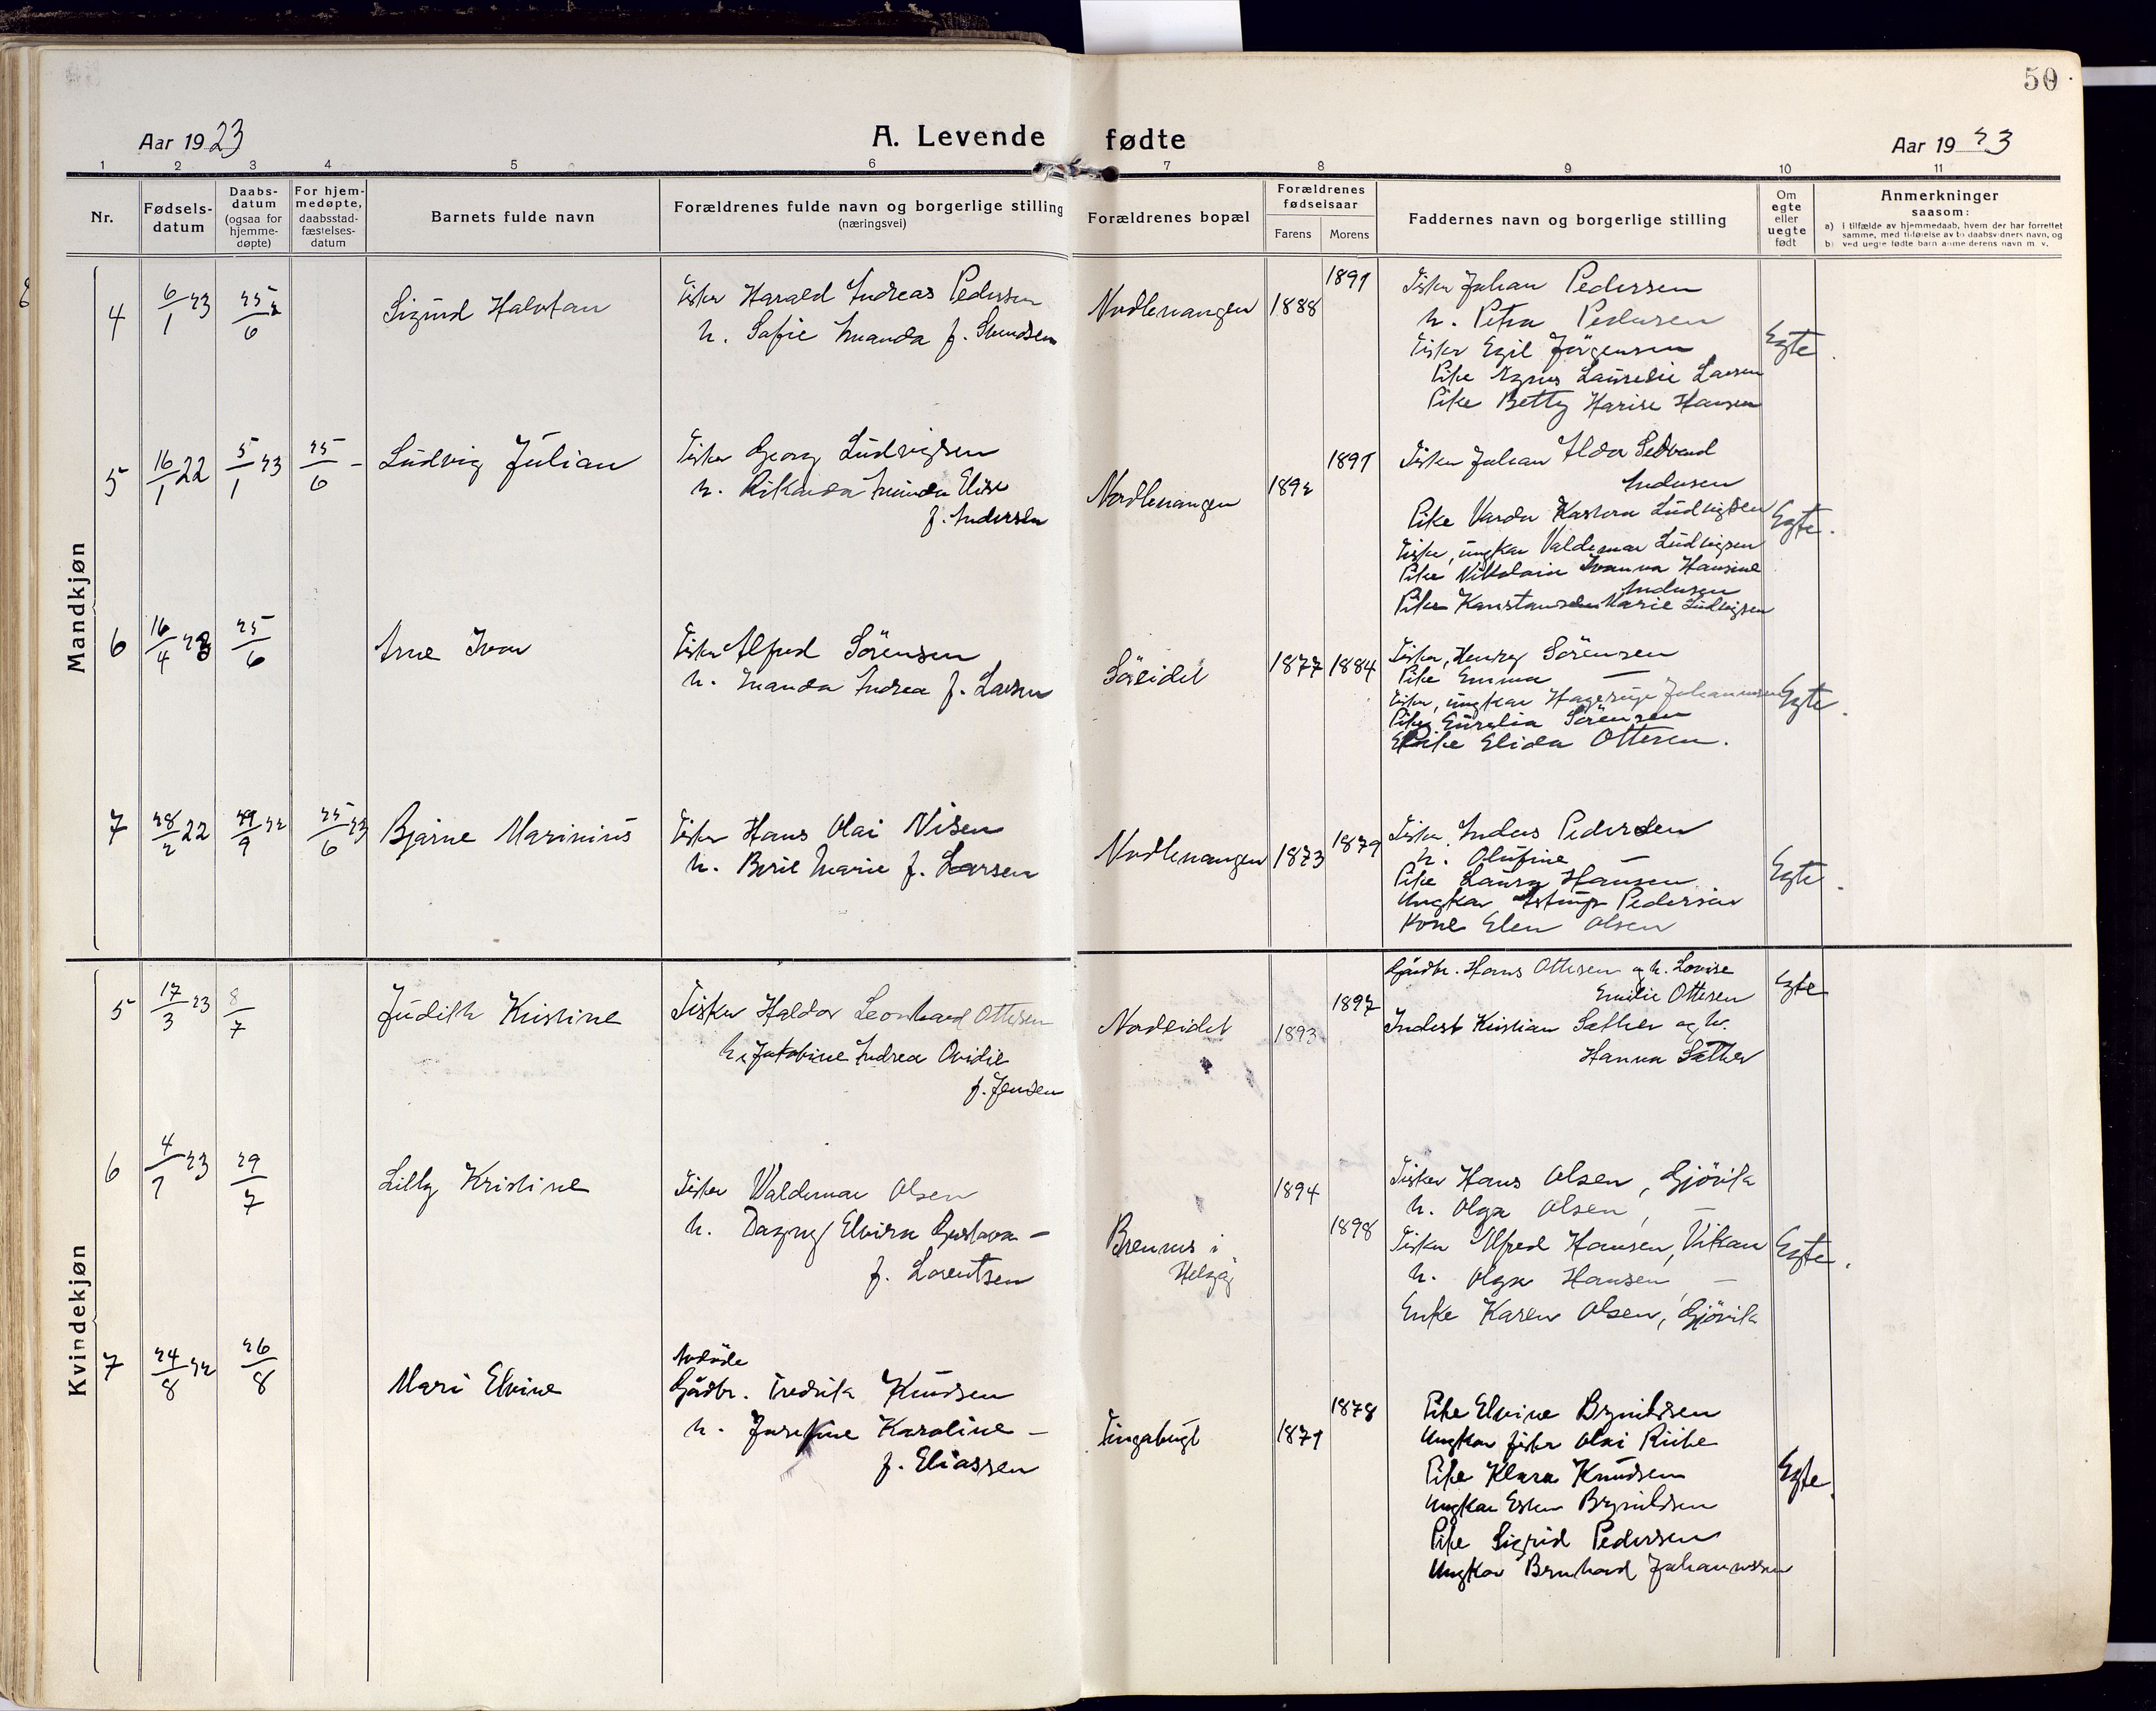 50
Aar 1923
A. Levende fødte
Aar 1923
1 2 3 4 5 6 7 8 9 10 11
Nr.
Fødsels-
datum
Daabs-
datum
(ogsaa for
hjemme-
døpte)
For hjem-
medøpte,
daabsstad-
fæstelses-
datum
Barnets fulde navn
Forældrenes fulde navn og borgerlige stilling
(næringsvei)
Forældrenes bopæl
Forældrenes
fødselsaar
Farens Morens
Faddernes navn og borgerlige stilling
Om
egte
eller
uegte
født
Anmerkninger
saasom:
a) i tilfælde av hjemmedaab, hvem der har forrettet
samme, med tilføielse av to daabsvidners navn, og
b) ved uegte fødte barn anmelderens navn m. v.
Mandkjøn
4 6/1 23 25/6
Sigurd Halvdan
Fisker Harald Andreas Pedersen
h. Sofie Amanda f.
Nordlenangen 1888 1891
Fisker Johan Pedersen
h. Petra Pedersen
Fisker Egil Jørgensen
Pike Agnes Larsen
Pike Betty Hansen
Egte.
5 16/1 22 5/1 23 25/6 -
Ludvig Julian
Fisker Georg Ludvigsen
h. Rikarda Elise
f. Andersen
Nordlenangen 1892 1891
Fisker Johan
Andersen
Pike Ludvigsen
Fisker, ungkar Valdemar Ludvigsen
Pike Hansine
Andersen
Pike Marie Ludvigsen
Egte.
6 16/4 23 25/6
Arne Ivar
Fisker Alfred Sörensen
h. Amanda Andrea f. Larsen
Söreidet 1877 1884
Fisker, Henry Sörensen
Pike Emma —
Fisker, ungkar Hagerup Johannesen
Pike Sörensen
Pike Elida Ottesen.
Egte.
7 28/2 22 29/9 22 25/6 23
Bjarne Marinius
Fisker Hans Olai Nisen
h. Berit Marie f. Larsen
Nordlenangen 1873 1879
Fisker Anders Pedersen
h. Olufine —
Pike Laura Hansen
Ungkar Astrup Pedersen
Kone Elen Olsen
Egte.
Kvindekjøn
5 17/3 23 8/7
Judith Kristine
Fisker Haldor Leonhard Ottesen
h. Jakobine Andrea Ovidie
f. Jensen
Nordeidet 1893 1897
Gårdbr. Hans Ottesen og h. Lovise
Emilie Ottesen
Kristian Sæther og h.
Hanna Sæther
Egte
6 4/7 23 29/7
Lilly Kristine
Fisker Valdemar Olsen
h. Dagny Elvira Gustava —
f. Lorentsen
i
Helgøy
1894 1898
Fisker Hans Olsen, Gjövik
h. Olga Olsen, —
Fisker Alfred Hansen, Vikan
h. Olga Hansen, —
Enke Karen Olsen, Gjövik
Egte.
7 24/8 22 26/8
Mari Elvine
Gårdbr. Fredrik Knudsen
h. Josefine Karoline —
f. Eliassen
1871 1878
Pike Elvine Brynildsen
Ungkar fisker Olai
Pike Klara Knudsen
Ungkar Brynildsen
Pike Sigrid Pedersen
Ungkar Bernhard Johannessen
Egte.